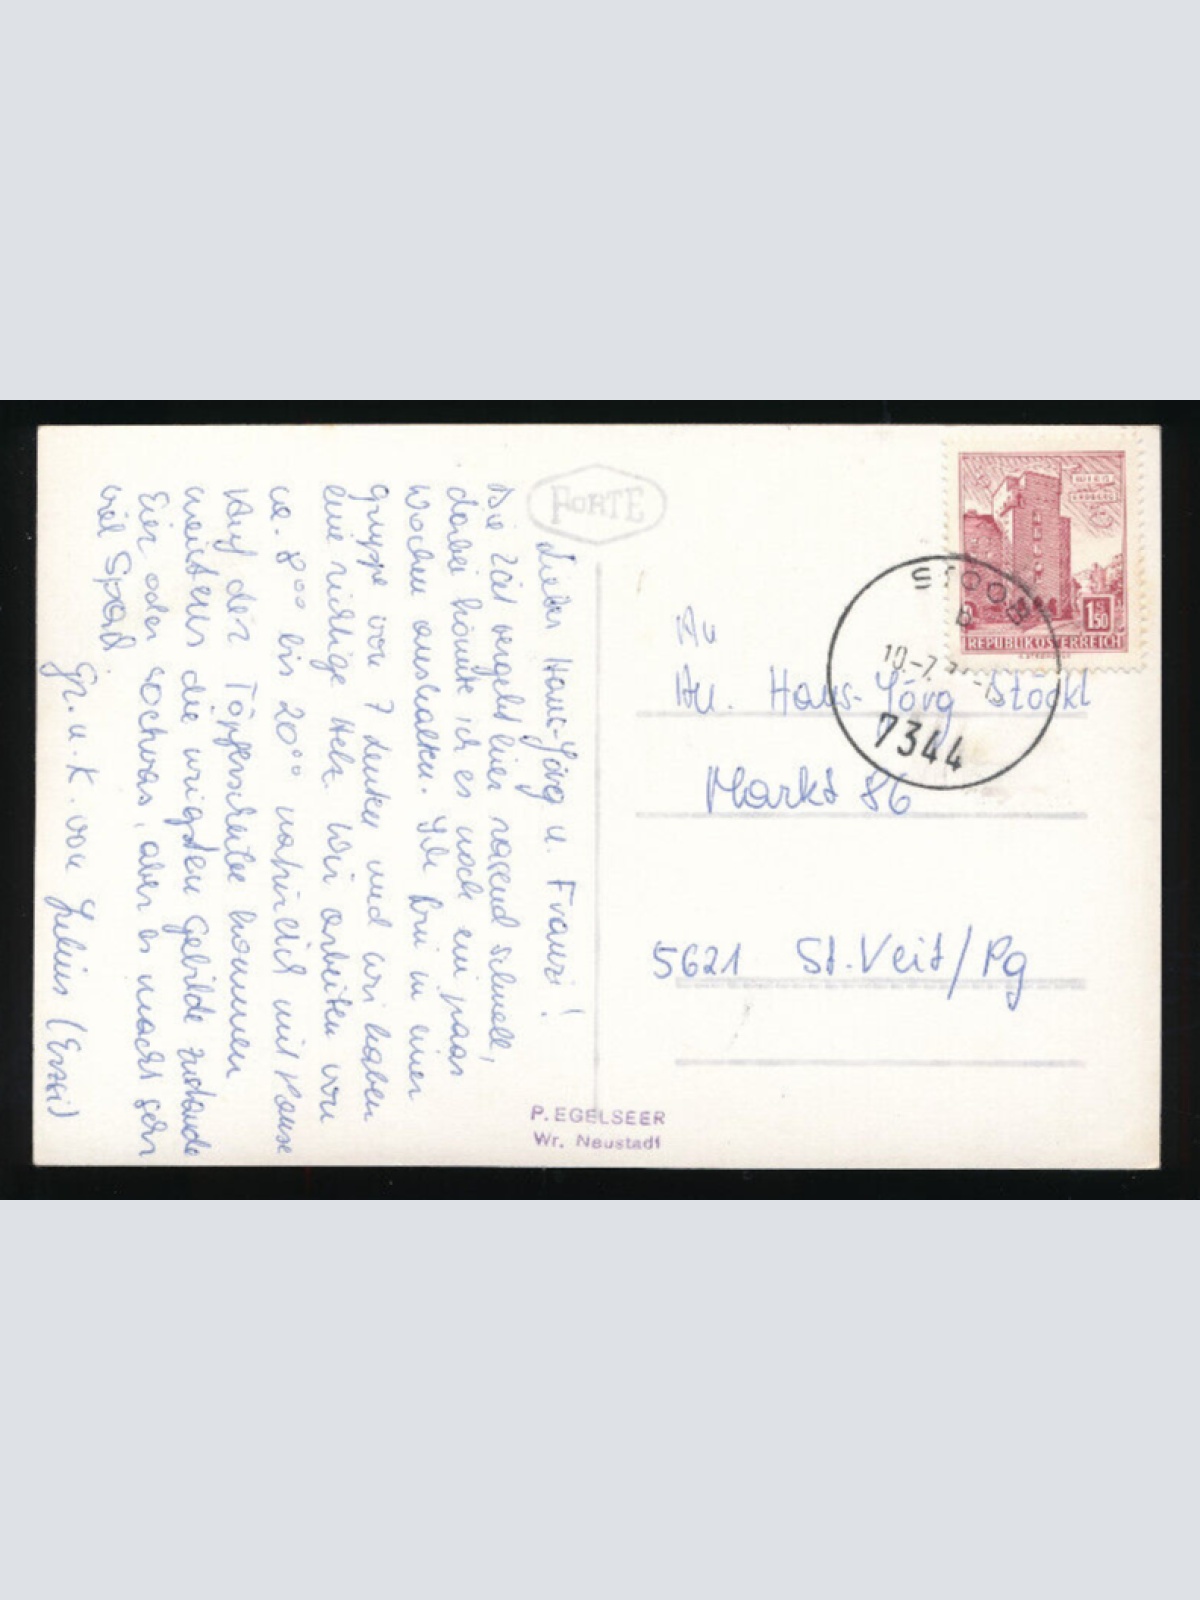 FORTE
Lieber Hans-Jörg u. Franzi!
Die Zeit vergeht hier rasend schnell,
dabei könnte ich es noch ein paar
Wochen aushalten. Ich bin in einer
gruppe von 7 Leuten und wir haben
eine richtige Hetz. Wir arbeiten von
ca. 8⁰⁰ bis 20⁰⁰ natürlich mit Pause
Auf der Töpferscheibe kommen
meistens die urigsten Gebilde zustande
Eier oder sochwas, aber es macht sehr
viel Spaß
Gr. u. K. von
WIEN
ERDBERG
1.50
S
REPUBLIK ÖSTERREICH
STOOB
b
10.-7.
7344
An
An. Hans-Jörg Stöckl
Markt 86
5621 St. Veit/Pg
P. EGELSEER
Wr. Neustadt